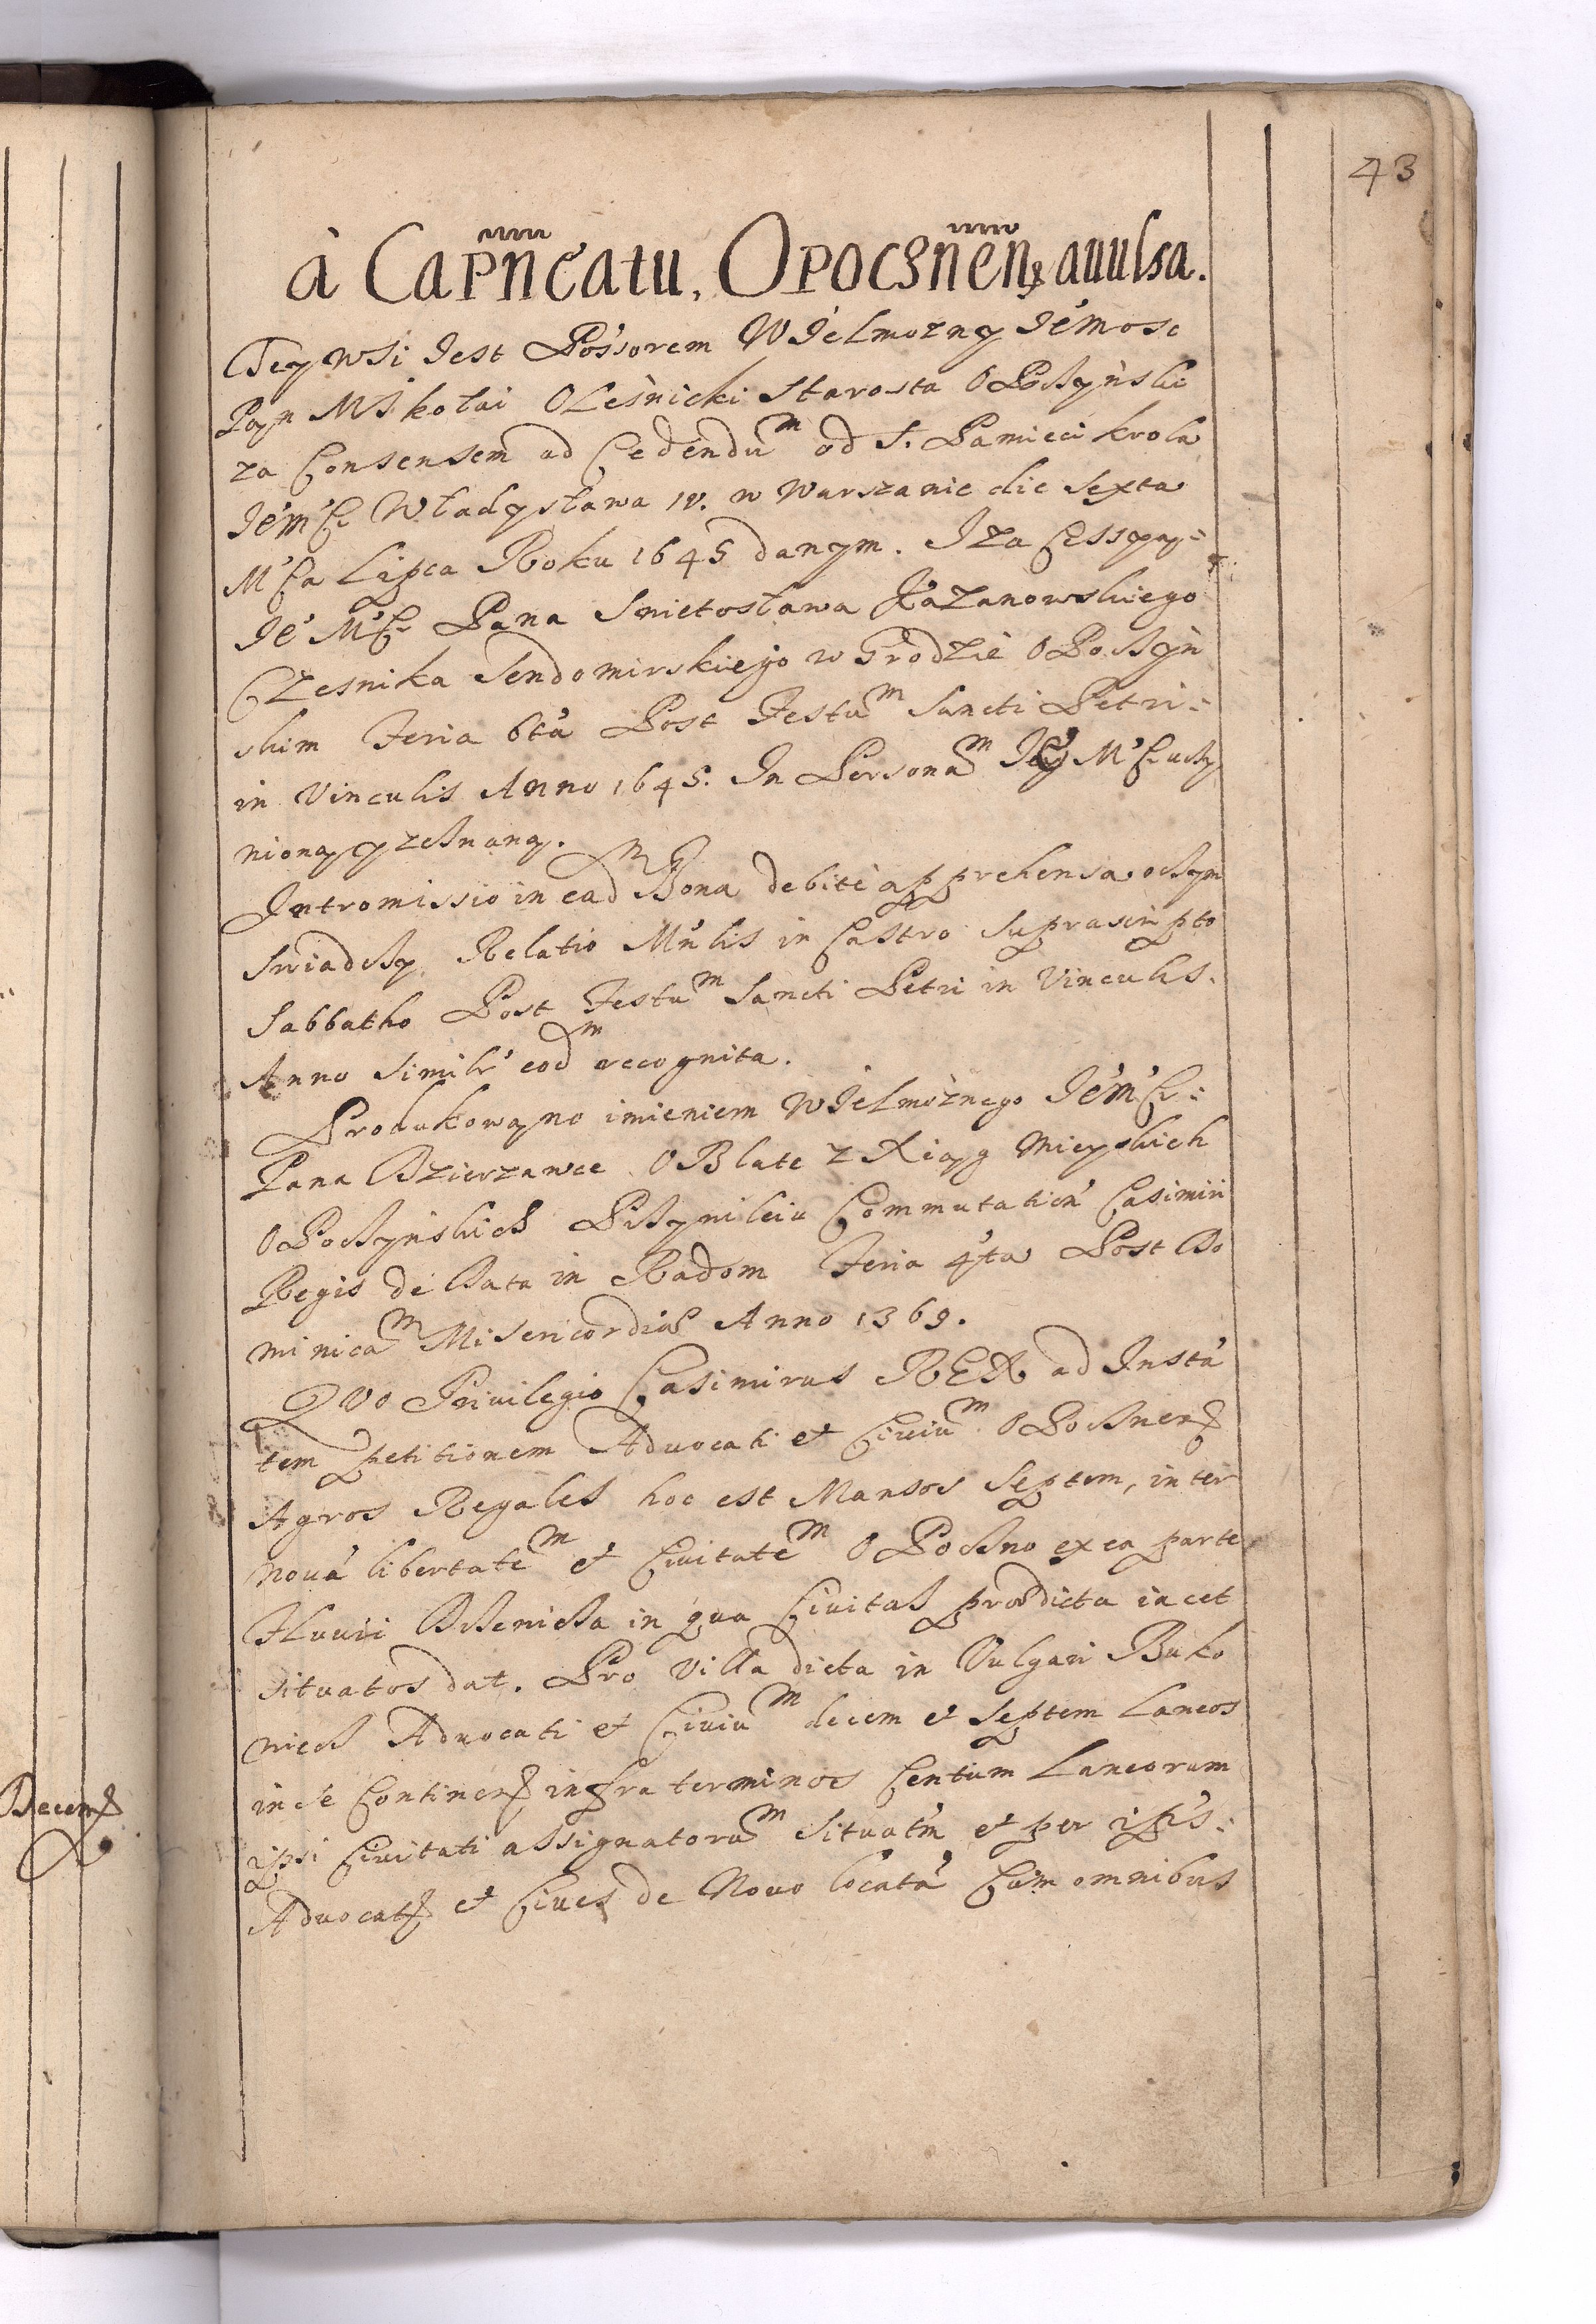 43
à Capñeatu, Opocznen̄ auulsa.
Tey wsi Iest Possorem Wielmozny Iémosc
Pan Mikołai Oleśnicki Starosta Opoczÿnski
za Consensem ad Cedendum od S. Pamieci krola
Iém'Ci Władysława IV. w Warszawie die Sexta
M'Ca Lipca Roku 1645 danym. Iza Cessyą
Ié M'Ci Pana Swietosława Kazanowskiego
Czesnika Sendomirskiego w Grodzie Opoczyn
skim Feria 6tá Post Festum Sancti Petri
in Vinculis Anno 1645. In Personam Iég M'Ci uczy
nioną yzeznaną.
Intromissio in eadm Bona debite apprehensa oczym
Swiadczy Relatio Mńlis in Castro suprascripto
Sabbatho Post Festum Sancti Petri in Vinculis.
Anno Similr' eodm recognita.
Produkowano imieniem Wielmożnego Iém'Ci
Pana Dzierzawce Oblate z Xiąg Mieyskich
Opoczynskich Przywileiu Commutatiến Casimiri
Regis de Data in Radom Feria 4'ta Post Do
minicam Misericordiæ Anno 1369.
Quo Priuilegio Casimirus REX ad Instá
tem petitionem Aduocati et Ciuium Opocznen̄
Agros Regales hoc est Mansos Septem, inter
nouá libertatem et Ciuitatem Opoczno ex ea parte
Fluuii Drzewicza in qua Ciuitas prædicta iacet
situatos dat. Pro villa dicta in Vulgari Buko
wiecz Aduocati et Ciuium decem et Septem Laneos
in se Continen̄ infra terminos Centum Laneorum
ipsi Ciuitati assignatorum Situat'm et per ip's
Aduocat̄ et Ciues de Nouo locatá Cum omnibus
Decem